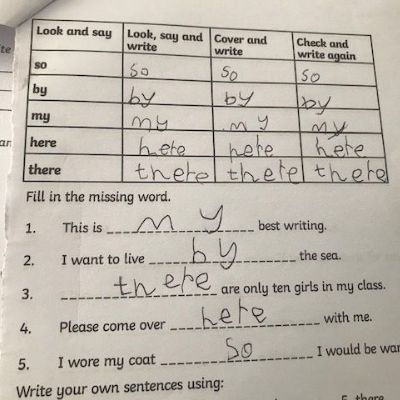 Look and say Look, say and write Cover and write Check and write again
so so so so
by by by by
my my my my
here here here here
there there there there
Fill in the missing word.
1. This is my best writing.
2. I want to live by the sea.
3. there are only ten girls in my class.
4. Please come over here with me.
5. I wore my coat so I would be
Write your own sentences using:
5. there